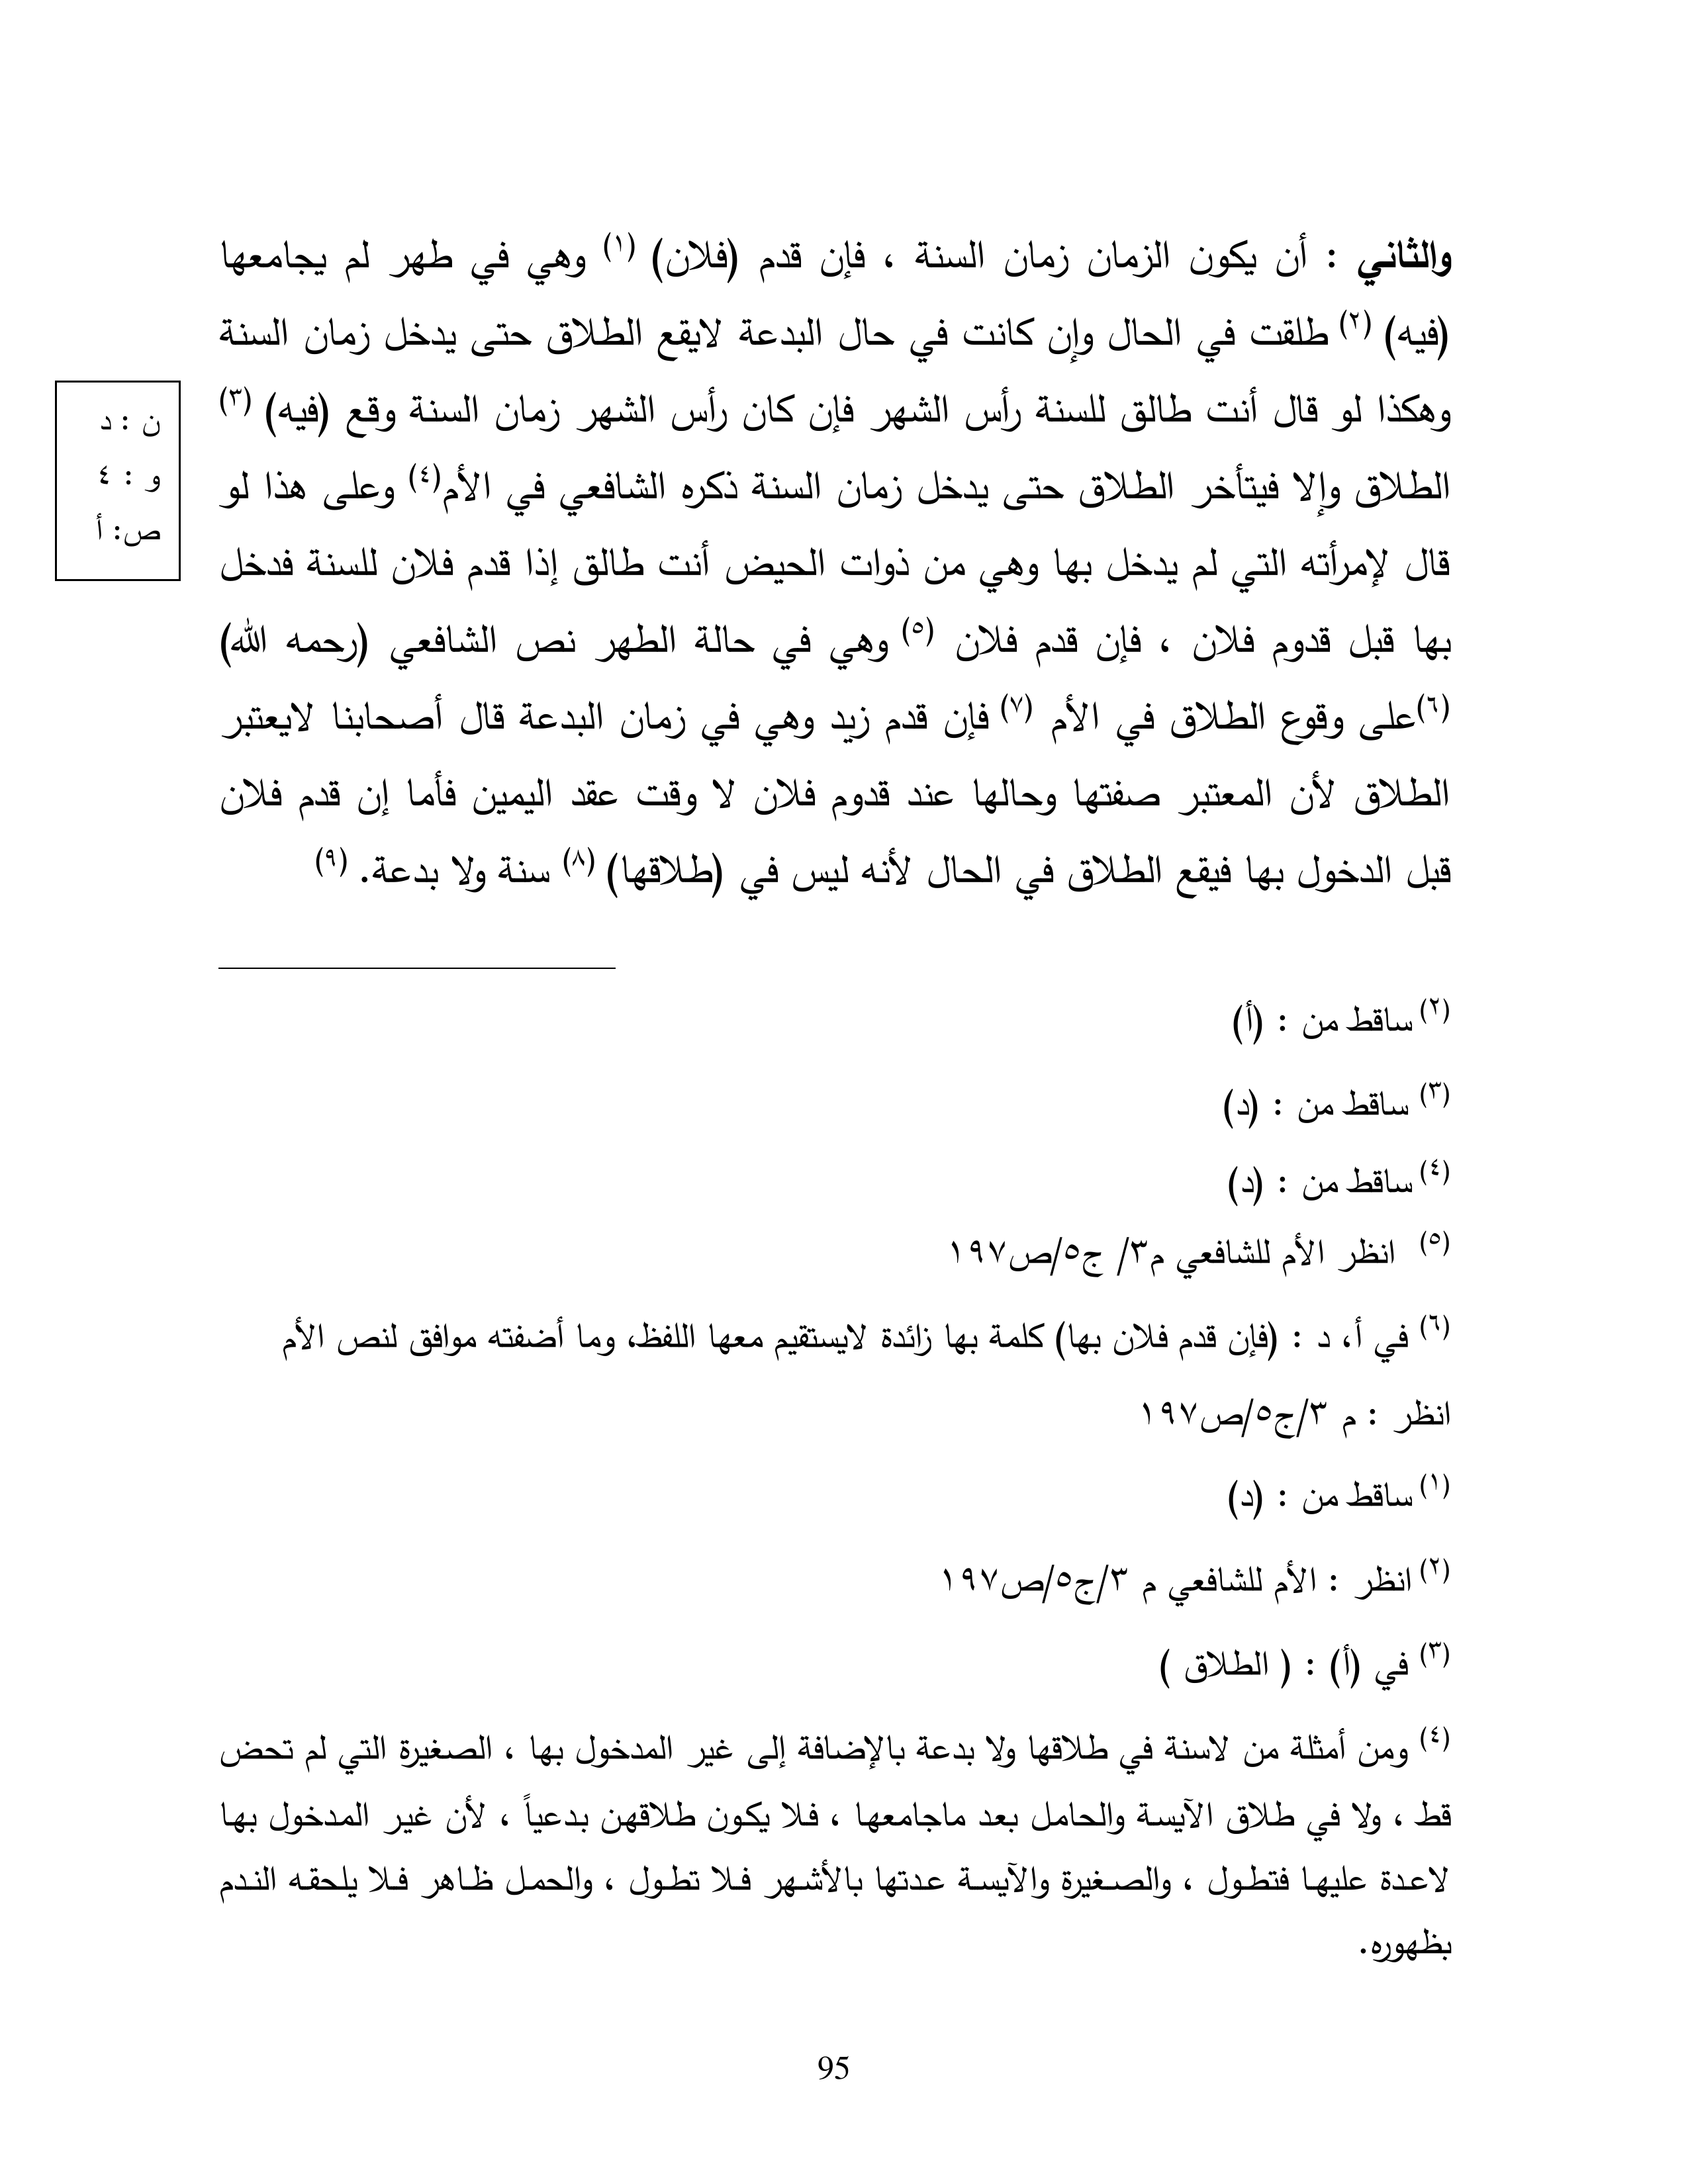 والثاني : أن يكون الزمان زمان السنة ، فإن قدم (فلان) (١) وهي في طهر لم يجامعها
(فيه) (٢) طلقت في الحال وإن كانت في حال البدعة لايقع الطلاق حتى يدخل زمان السنة
وهكذا لو قال أنت طالق للسنة رأس الشهر فإن كان رأس الشهر زمان السنة وقع (فيه) (٣)
الطلاق وإلا فيتأخر الطلاق حتى يدخل زمان السنة ذكره الشافعي في الأم(٤) وعلى هذا لو
قال لإمرأته التي لم يدخل بها وهي من ذوات الحيض أنت طالق إذا قدم فلان للسنة فدخل
بها قبل قدوم فلان ، فإن قدم فلان (٥) وهي في حالة الطهر نص الشافعي (رحمه الله)
(٦)على وقوع الطلاق في الأم (٧) فإن قدم زيد وهي في زمان البدعة قال أصحابنا لايعتبر
الطلاق لأن المعتبر صفتها وحالها عند قدوم فلان لا وقت عقد اليمين فأما إن قدم فلان
قبل الدخول بها فيقع الطلاق في الحال لأنه ليس في (طلاقها) (٨) سنة ولا بدعة. (٩)
ن : د
و : ٤
ص: أ
(٢) ساقط من : (أ)
(٣) ساقط من : (د)
(٤) ساقط من : (د)
(٥) انظر الأم للشافعي م٣/ ج٥/ص١٩٧
(٦) في أ، د : (فإن قدم فلان بها) كلمة بها زائدة لايستقيم معها اللفظ، وما أضفته موافق لنص الأم
انظر : م ٣/ج٥/ص١٩٧
(١) ساقط من : (د)
(٢) انظر : الأم للشافعي م ٣/ج٥/ص١٩٧
(٣) في (أ) : ( الطلاق )
(٤) ومن أمثلة من لاسنة في طلاقها ولا بدعة بالإضافة إلى غير المدخول بها ، الصغيرة التي لم تحض
قط ، ولا في طلاق الآيسة والحامل بعد ماجامعها ، فلا يكون طلاقهن بدعياً ، لأن غير المدخول بها
لاعدة عليها فتطول ، والصغيرة والآيسة عدتها بالأشهر فلا تطول ، والحمل ظاهر فلا يلحقه الندم
بظهوره.
95